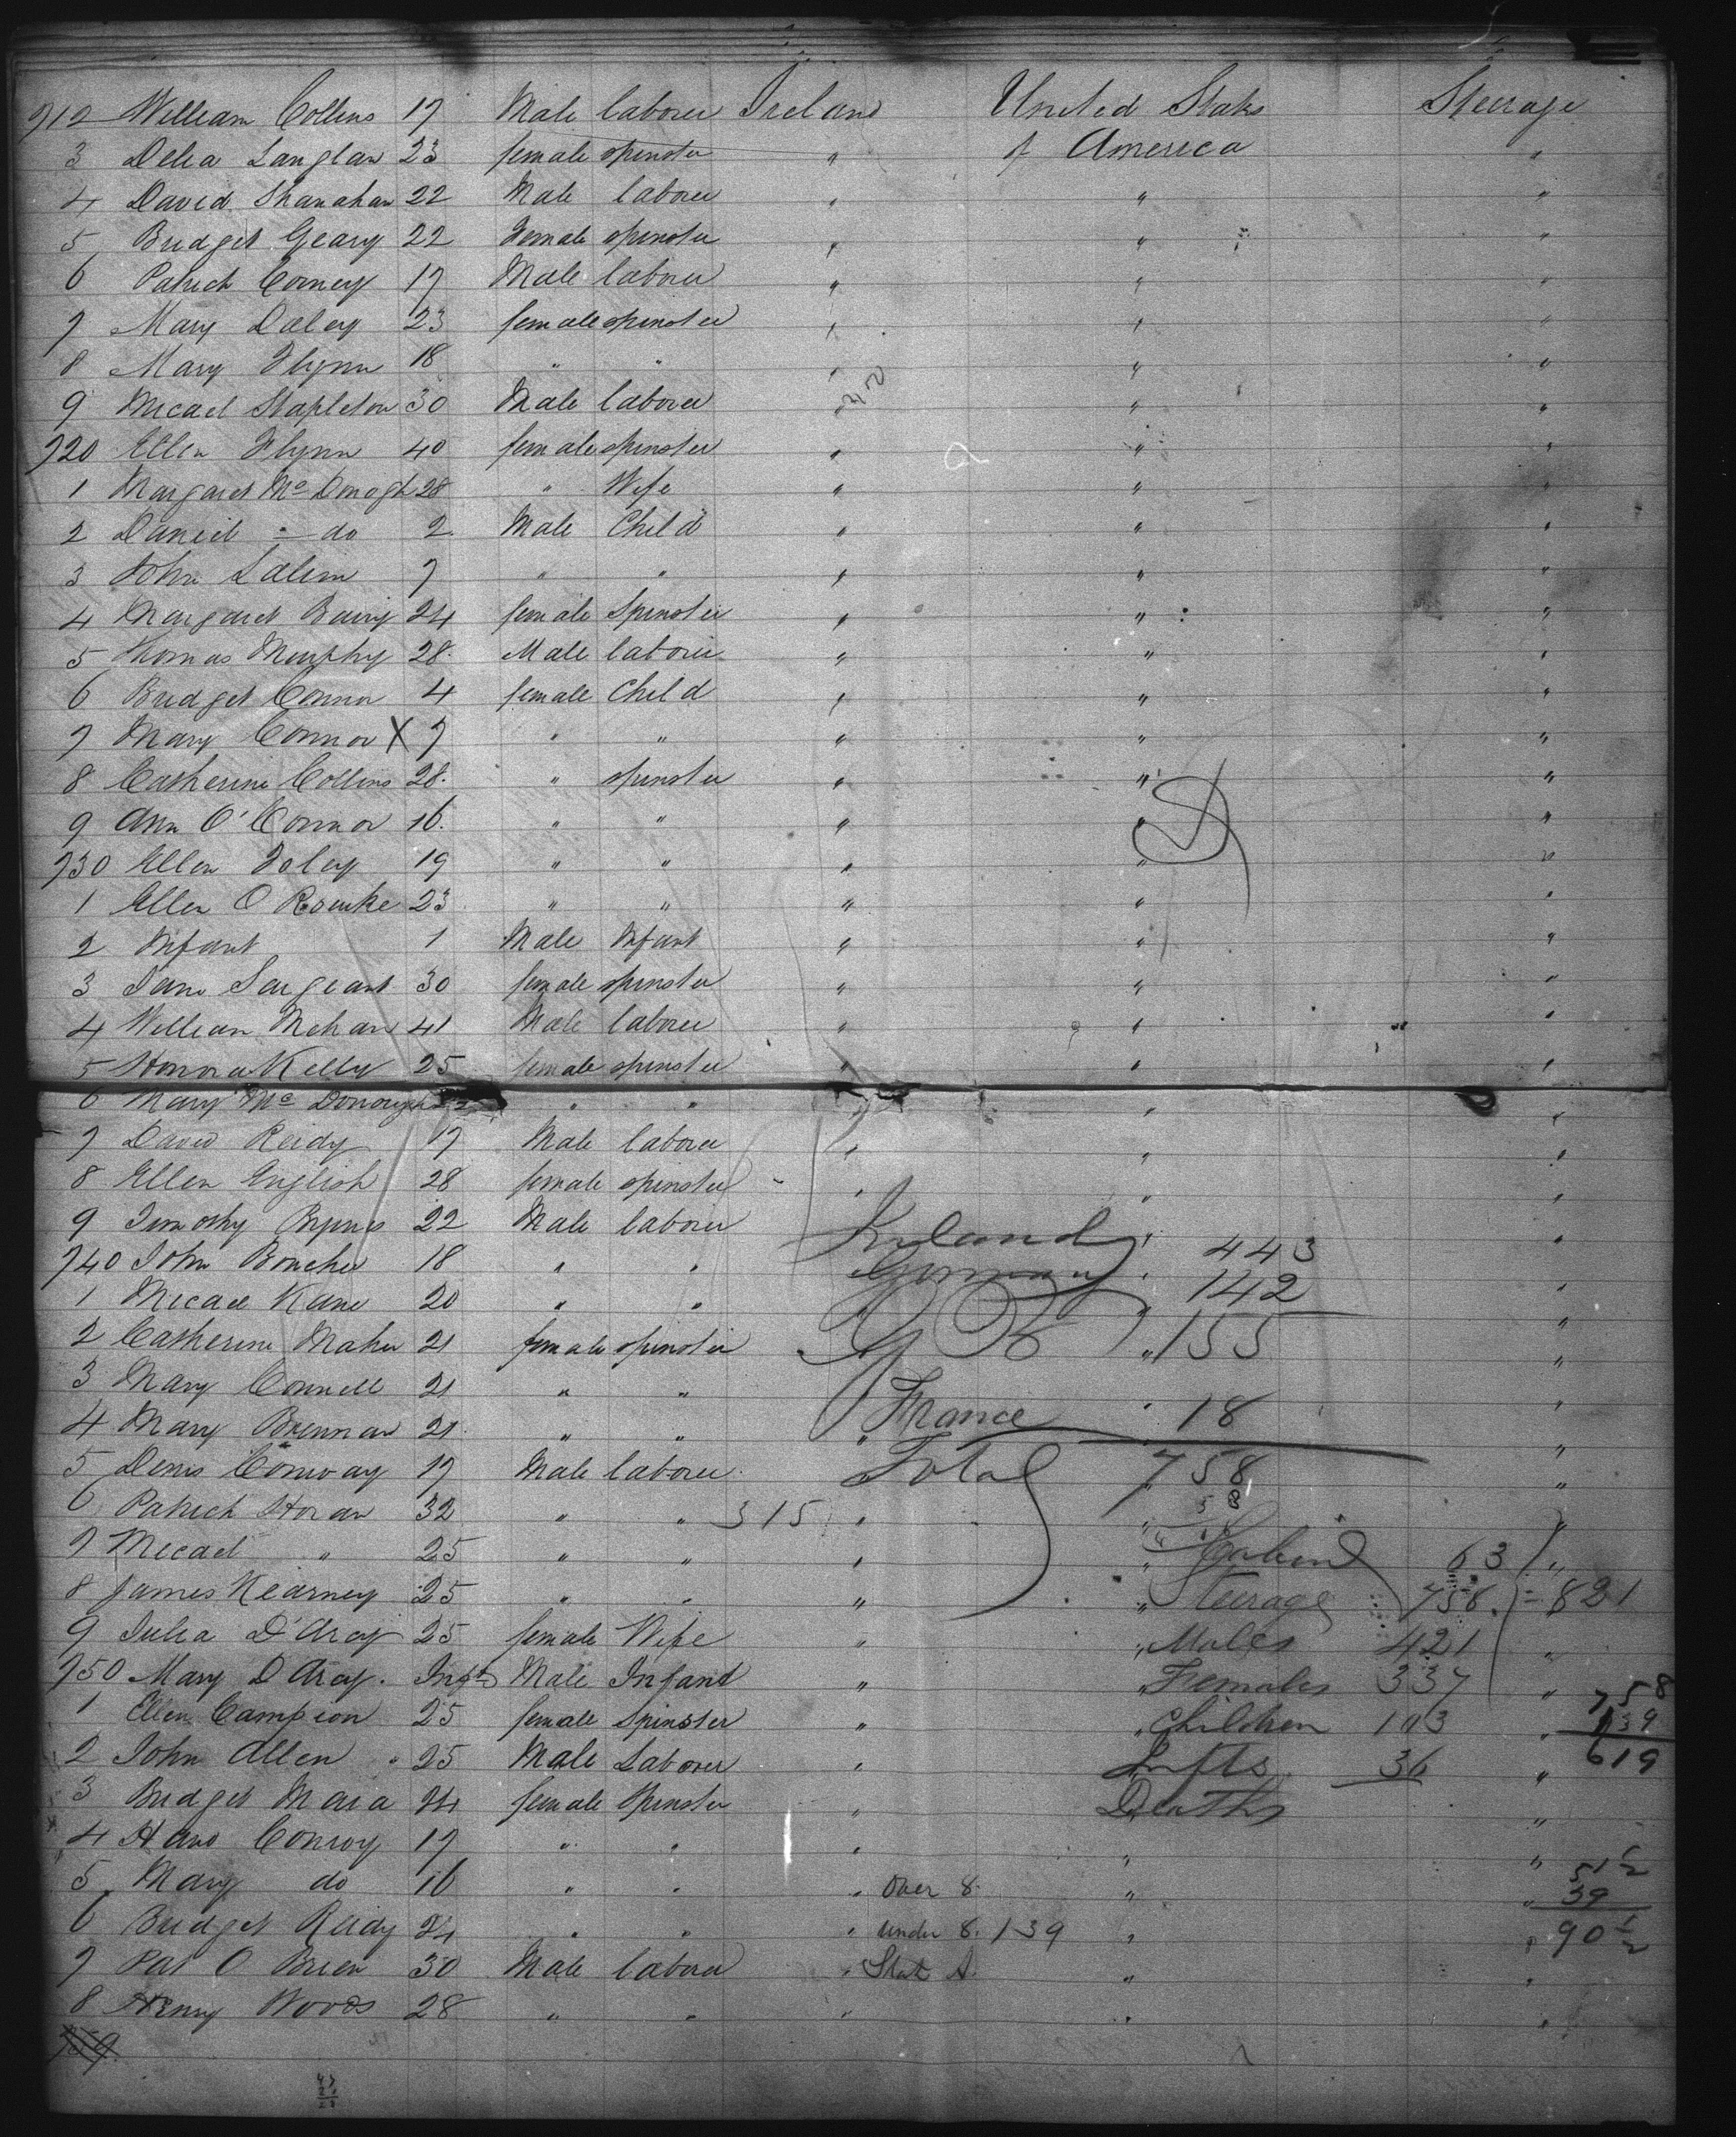 712 William Collins 17 Male laborer Ireland United States Steerage
3 Delia Langlan 23 female spinster " of America "
4 David Shanahan 22 Male laborer " " "
5 Bridget Geary 22 Female spinster " " "
6 Patrick Corney 17 Male laborer " " "
7 Mary Daley 23 female spinster " " "
8 Mary Flynn 18 " " " " "
9 Micael Stapleton 30 Male laborer " " "
720 Ellen Flynn 40 female spinster " " "
1 Margaret Mc Donogh 28 " Wife " " "
2 Daniel - do 2 Male Child " " "
3 John 7 " " " " "
4 Margaret Barry 24 female Spinster " " "
5 Thomas Murphy 28 Male laborer " " "
6 Bridget Connor 4 female Child " " "
7 Mary Connor X 7 " " " " "
8 Catherine Collins 28 " spinster " " "
9 Ann O'Connor 16 " " " " "
730 Ellen Foley 19 " " " " "
1 Ellen O Rourke 23 " " " " "
2 Infant 1 Male Infant " " "
3 Jane Sargeant 30 female spinster " " "
4 William Mehan 41 Male laborer " " "
5 Honora Kelly 25 female spinster " " "
6 Mary Mc Donough " " " " "
7 David Reidy 17 Male laborer " " "
8 Ellen English 28 female spinster " " "
9 Timothy Byrnes 22 Male laborer Ireland " 443 "
740 John Boucher 18 " " Germany " 142 "
1 Micael Kane 20 " " " " "
2 Catherine Maher 21 female spinster G B " 155 "
3 Mary Connell 21 " " France " 18 "
4 Mary Brennan 21 " " " "
5 Denis Conway 17 Male laborer Total 758 "
6 Patrick Horan 32 " " 315 " " 58 "
7 Micael " 25 " " " " Cabin 63 "
8 James Kearney 25 " " " " Steerage 758 = 821
9 Julia D'Arcy 25 female Wife " " Males 421 "
750 Mary D Arcy. Inft Male Infant " " Females 337 " 758
1 Ellen Campion 25 female Spinster " " Children 103 " 139
2 John Allen 25 Male Laborer " Infts 36 " 619
3 Bridget Mara 24 female Spinster " Deaths "
4 Hano Conroy 17 " " " " "
5 Mary do 16 " " " over 8 " 51 1/2
" 39
6 Bridget Reidy 24 " " " under 8. 139 " " 90 1/2
7 Pat O Brien 30 Male laborer " " "
8 Henry Woods 28 " " " " "
759